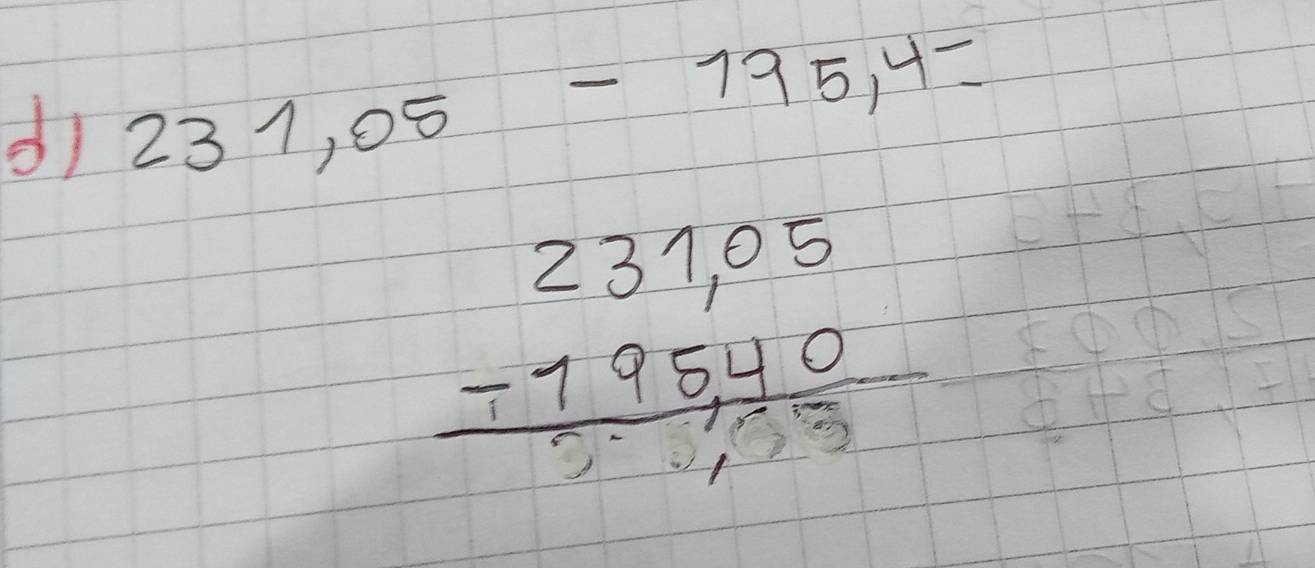 d) 231,05 - 195,4=
231,05
-195,40
35,65